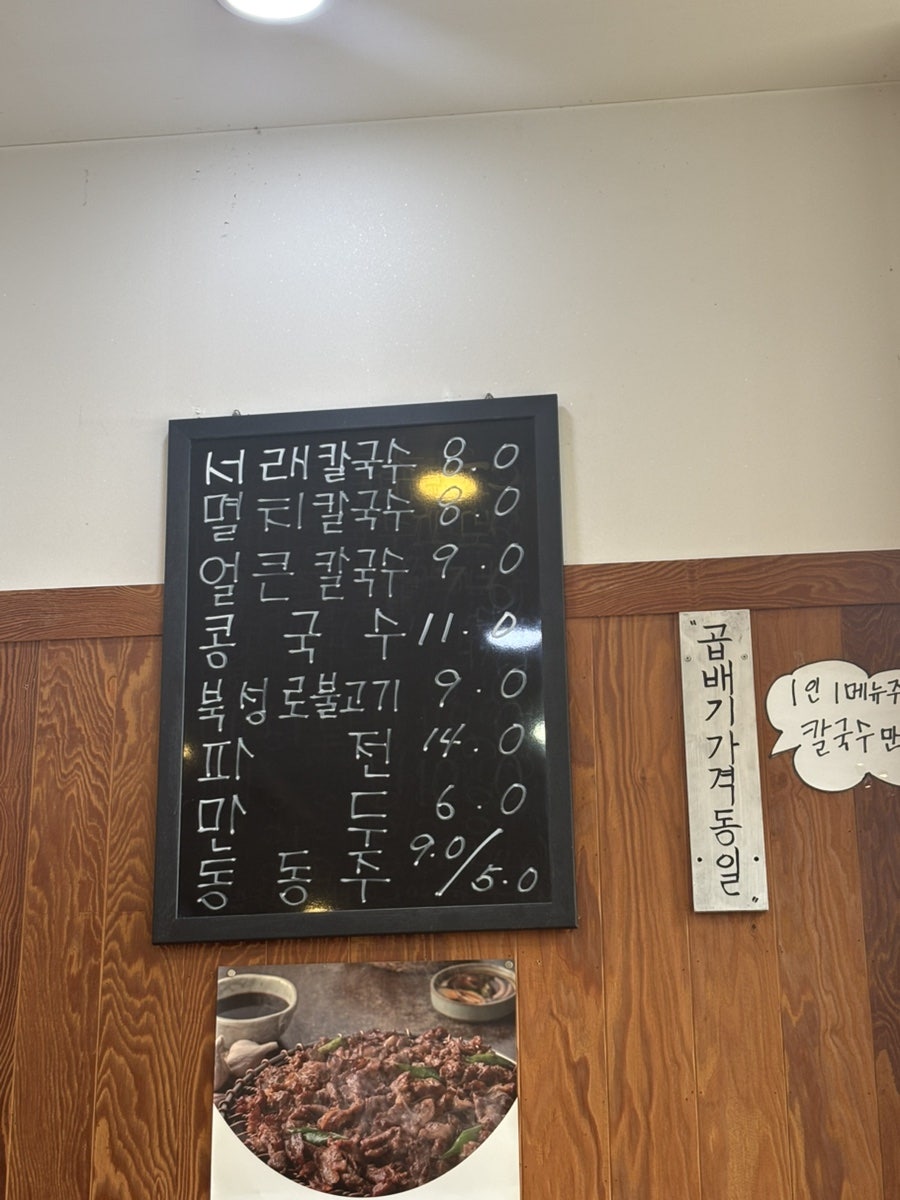 서래칼국수 8.0
멸치칼국수 8.0
얼큰칼국수 9.0
콩국수 11.0
북성로불고기 9.0
파전 14.0
만두 6.0
동동주 9.0/5.0
"곱배기가격동일"
1인 1메뉴주
칼국수 만